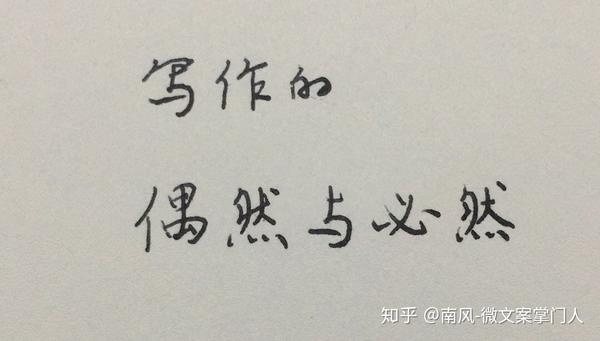 写作的
偶然与必然
知乎 @南风-微文案掌门人